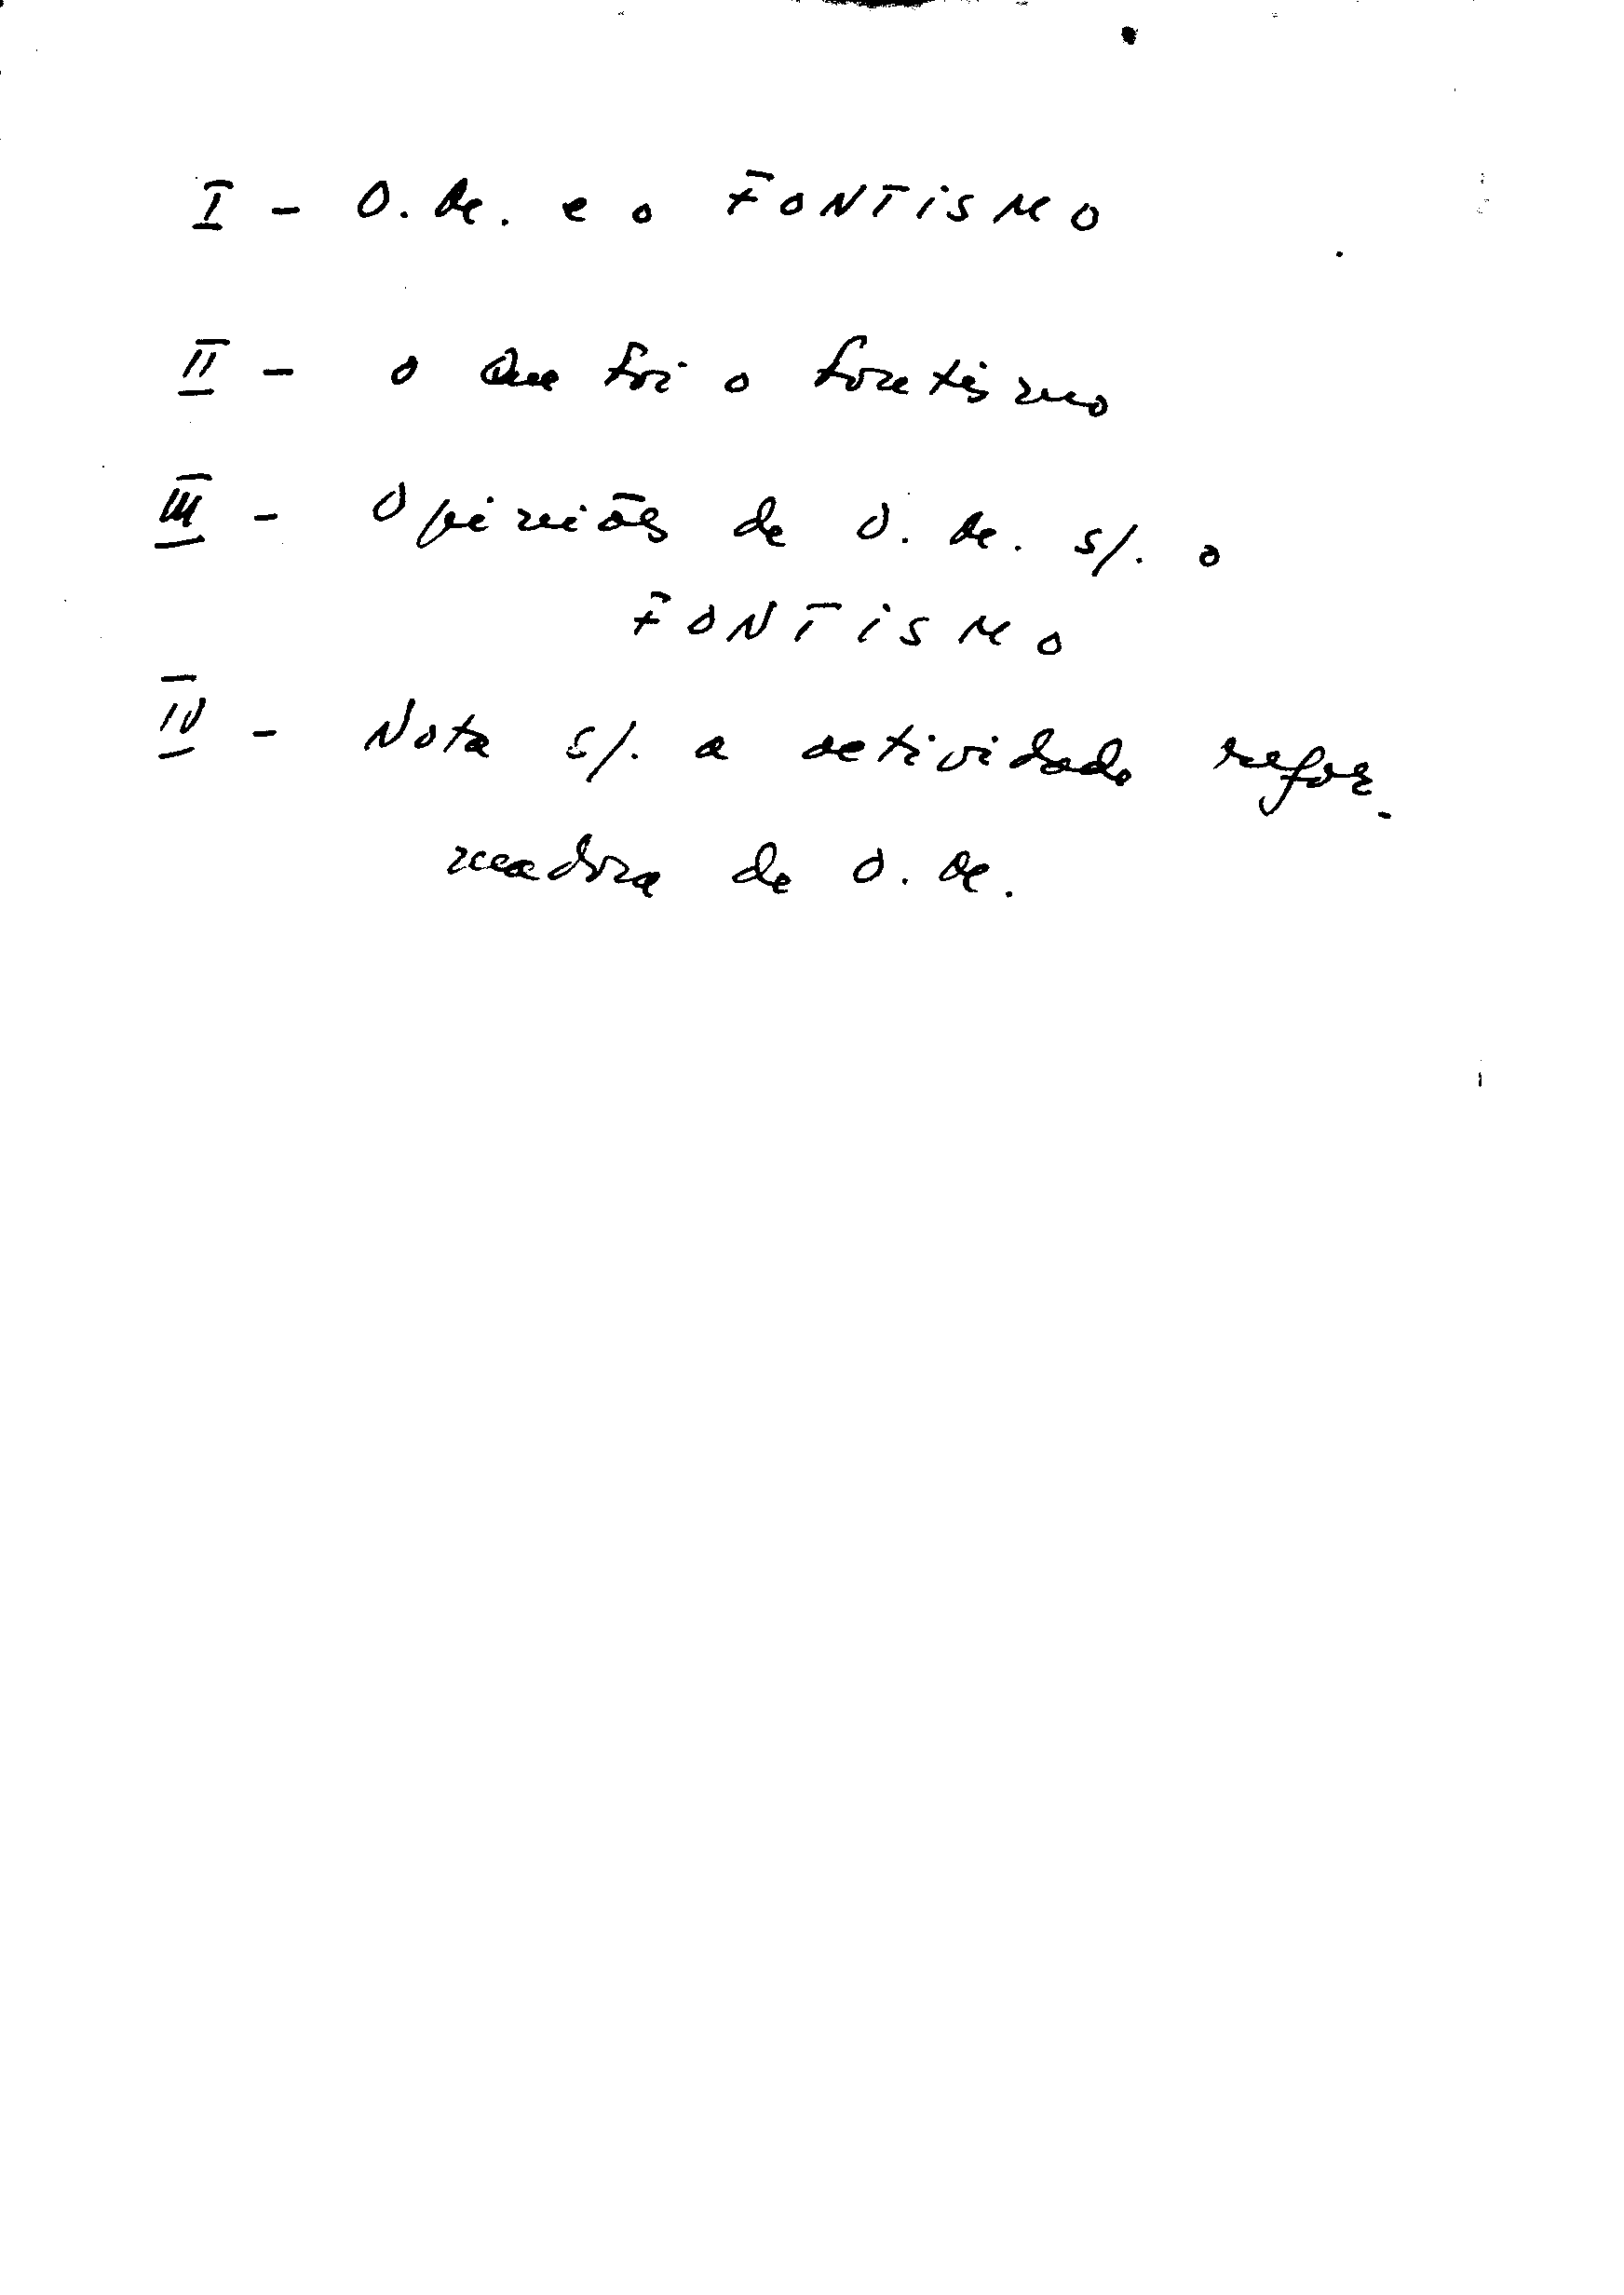 I - O. M. e o FONTISMO
II - o que foi o fontismo
III - Opiniões de O. M. s/. o
FONTISMO
IV - Nota s/. a actividade refor-
madora de O. M.